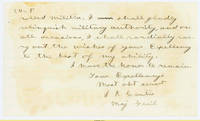 rolled militia. I shall gladly
relinquish military authority, and on
all occasions, I shall cordially car-
ry out the wishes of your Excellency
to the best of my ability.
I have the honor to remain
Your Excellency's
Most obt servt
S R Curtis
Maj Genl